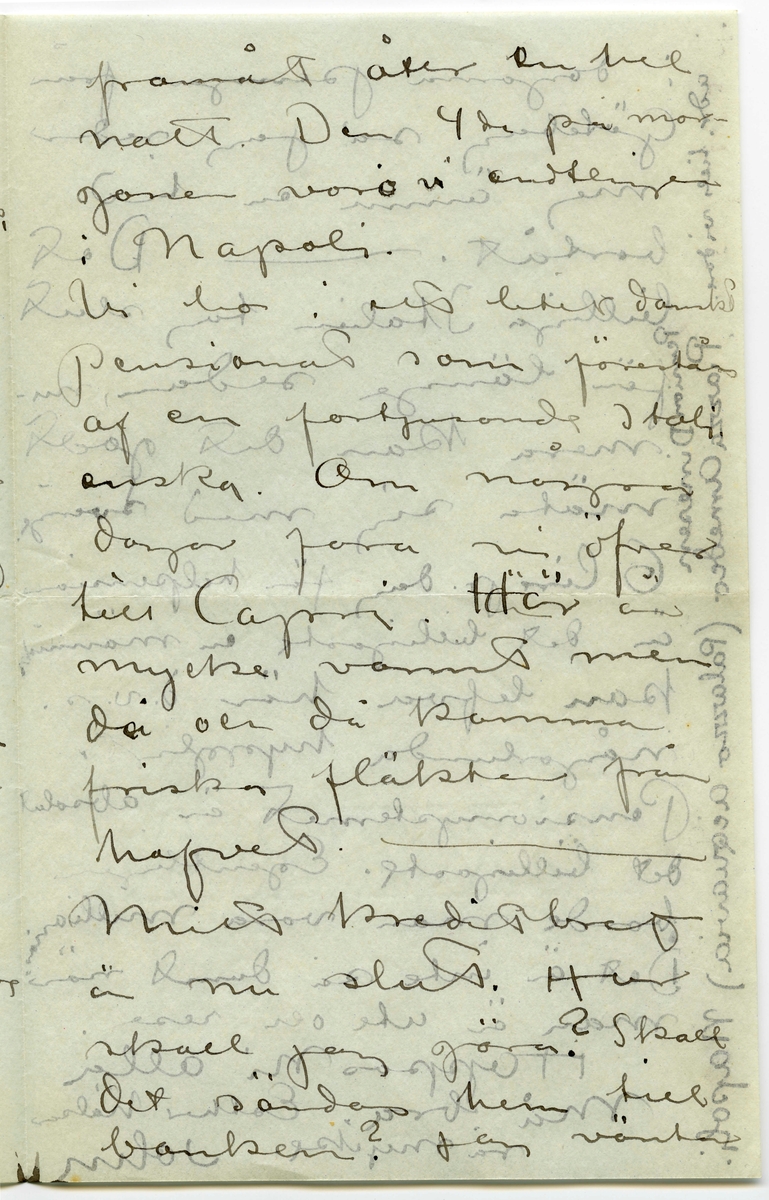 framåt åter en hel
natt. Den 4de på mor-
gonen voro vi endtligen
i Napoli.
Vi bo i ett litet danskt
pensionat som förestås
af en förtjusande Itali
enska. Om några
dagar fara vi öfver
till Capri. Här är
mycke varmt men
då och då komma
friska fläkter från
hafvet.
Mitt kreditbref
är nu slut. Hur
skall jag göra? Skall
det sändas hem till
banken? Jag väntar